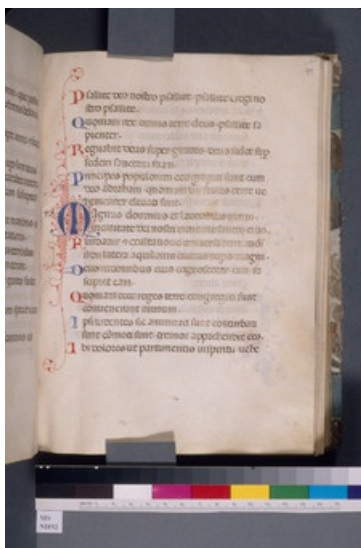 Psallite deo nostro psallite: psallite regi no
stro psallite.
Quoniam rex omnis terre deus: psallite sa
pienter.
Regnabit deus super gentes: deus sedet sup
sedem sanctam suam.
Principes populorum congregati sunt cum
deo abraham: quoniam dii fortes terre ve
hementer elevati sunt.
Magnus dominus et laudabilis nimis:
in civitate dei nostri in monte sancto eius.
mons
latera aquilonis civitas regis magni.
Deus in domibus eius cognoscetur: cum su
scipiet eam.
Quoniam ecce reges terre congregati sunt:
convenerunt in unum.
Ipsi videntes sic admirati sunt: conturbati
sunt cōmoti sunt: tremor apprehendit eos.
Ibi dolores ut parturientis: in spiritu vehe
MS